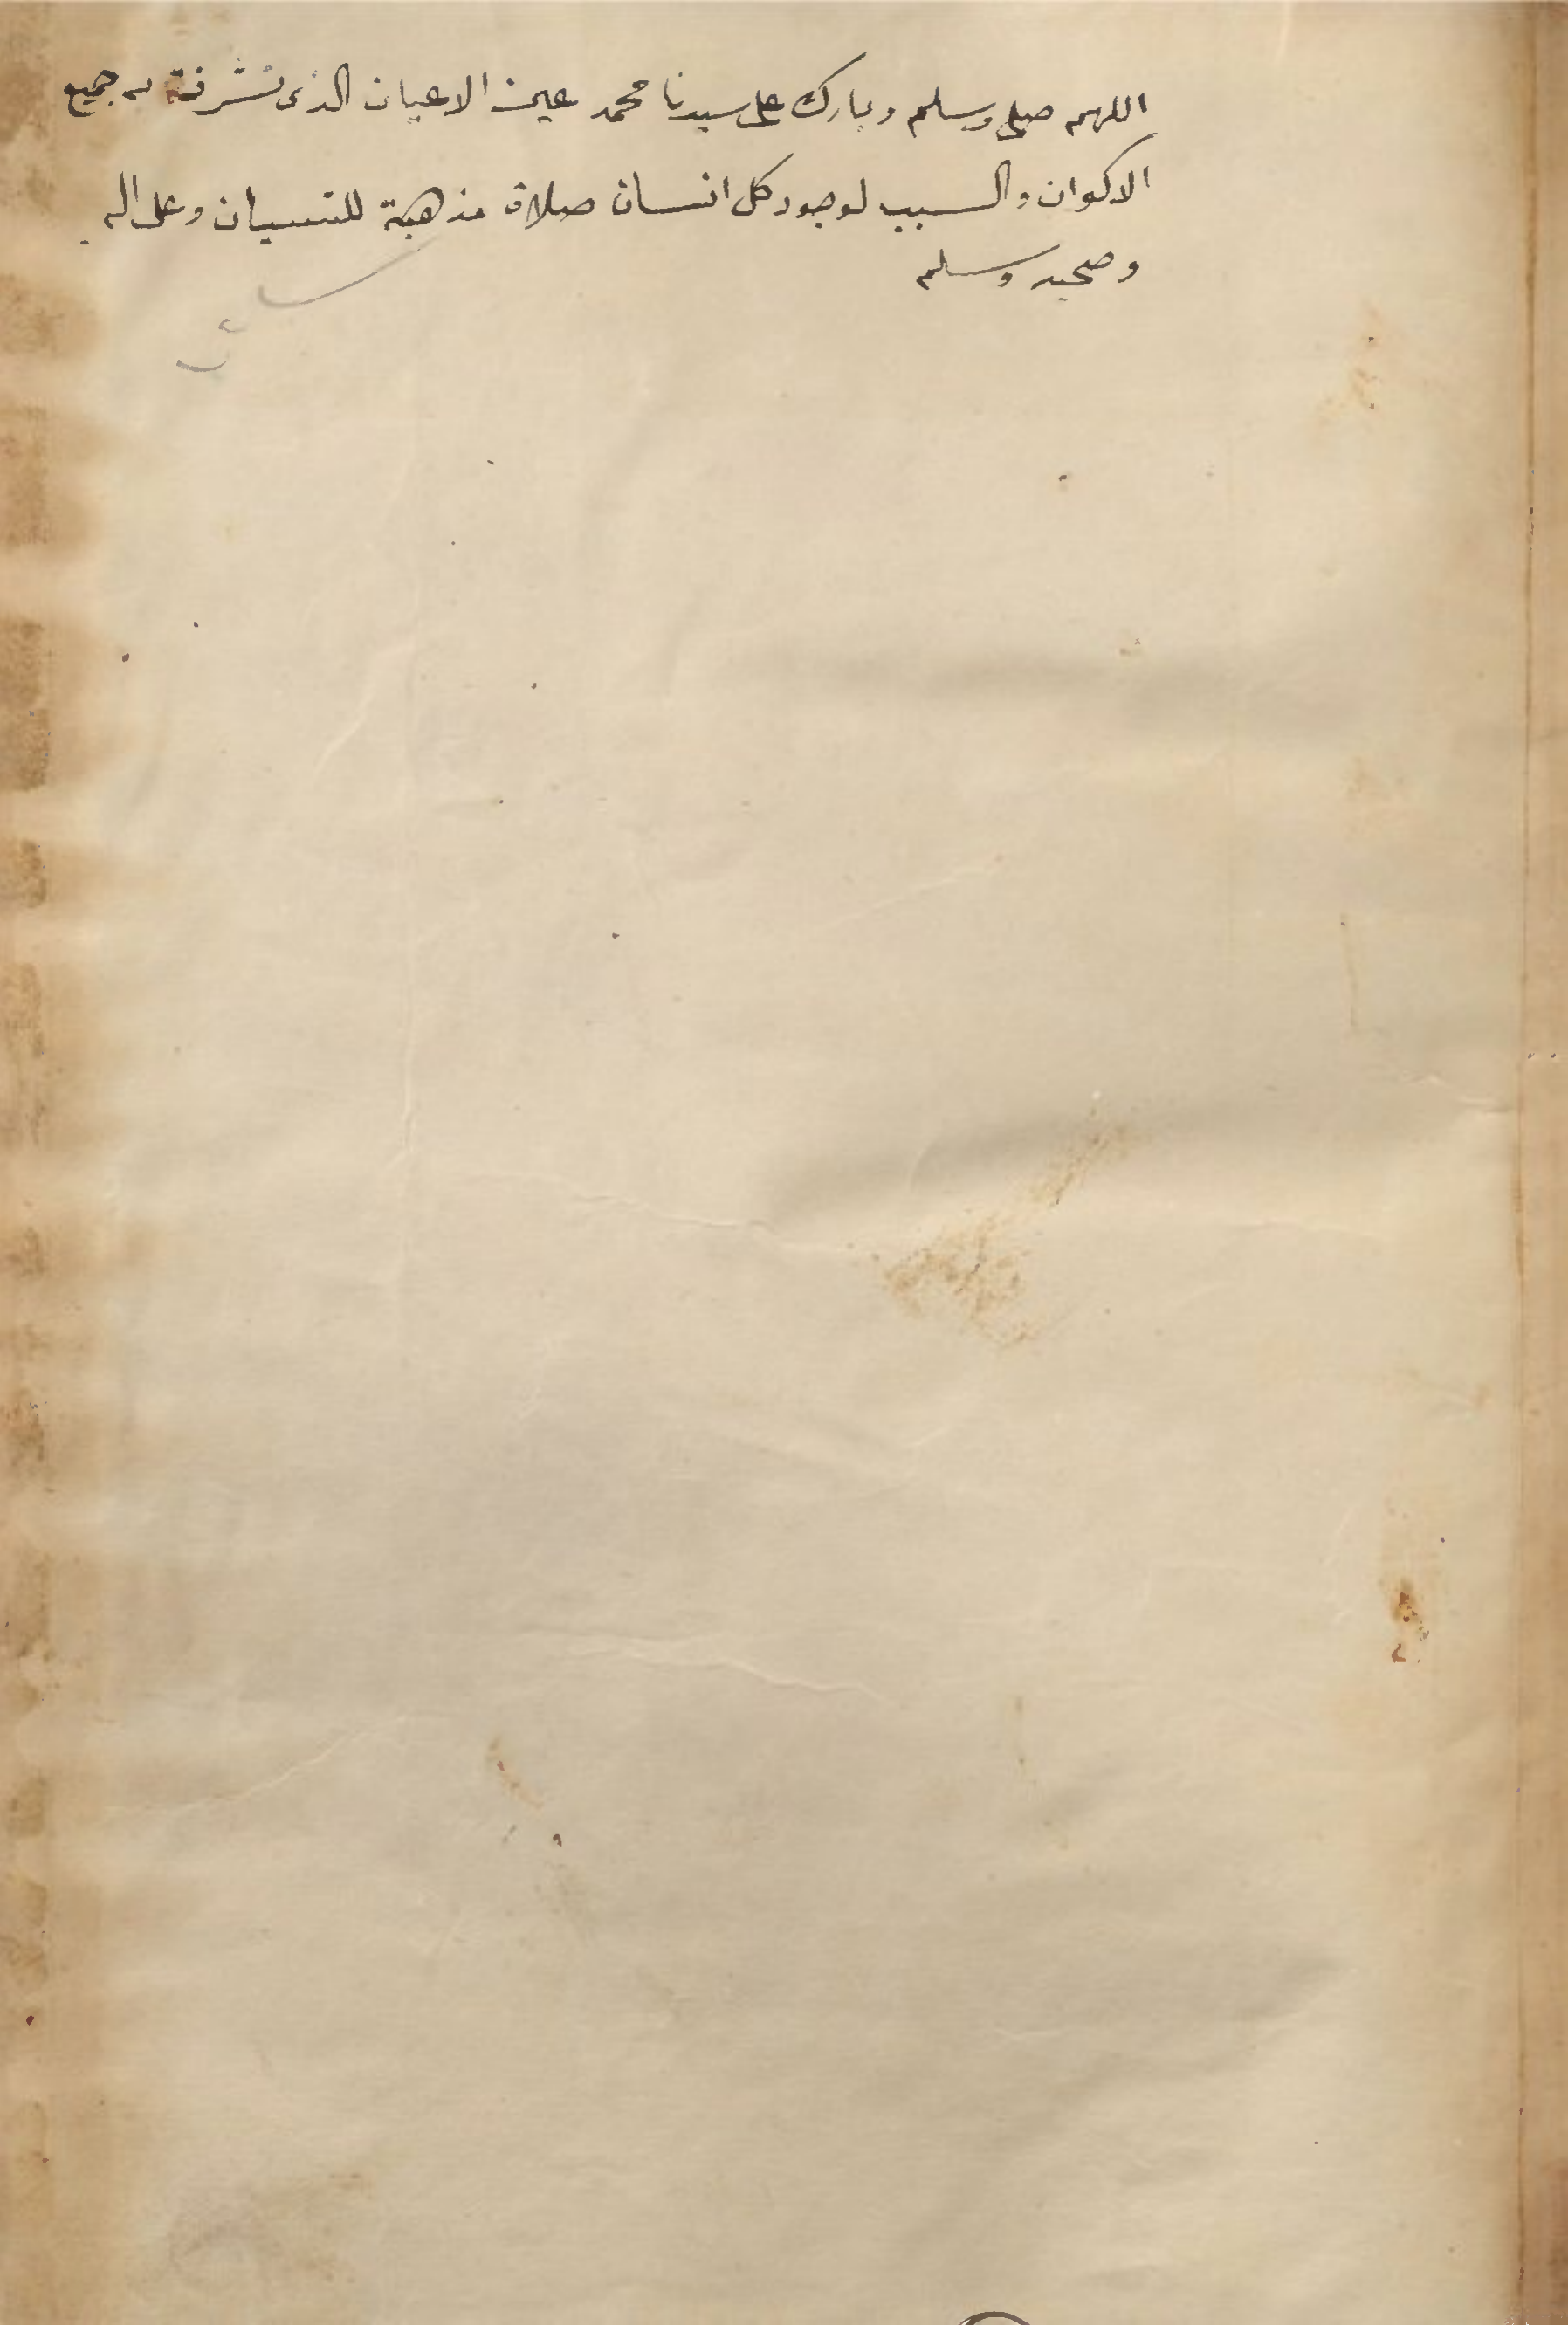 اللهم صلى وسلم وبارك على سيدنا محمد عين الاعيان الذى تشرفة به جميع
الاكوان والسبب لوجود كل انسان صلاة مذهبة للنسيان وعلى اله
وصحبه وسلم